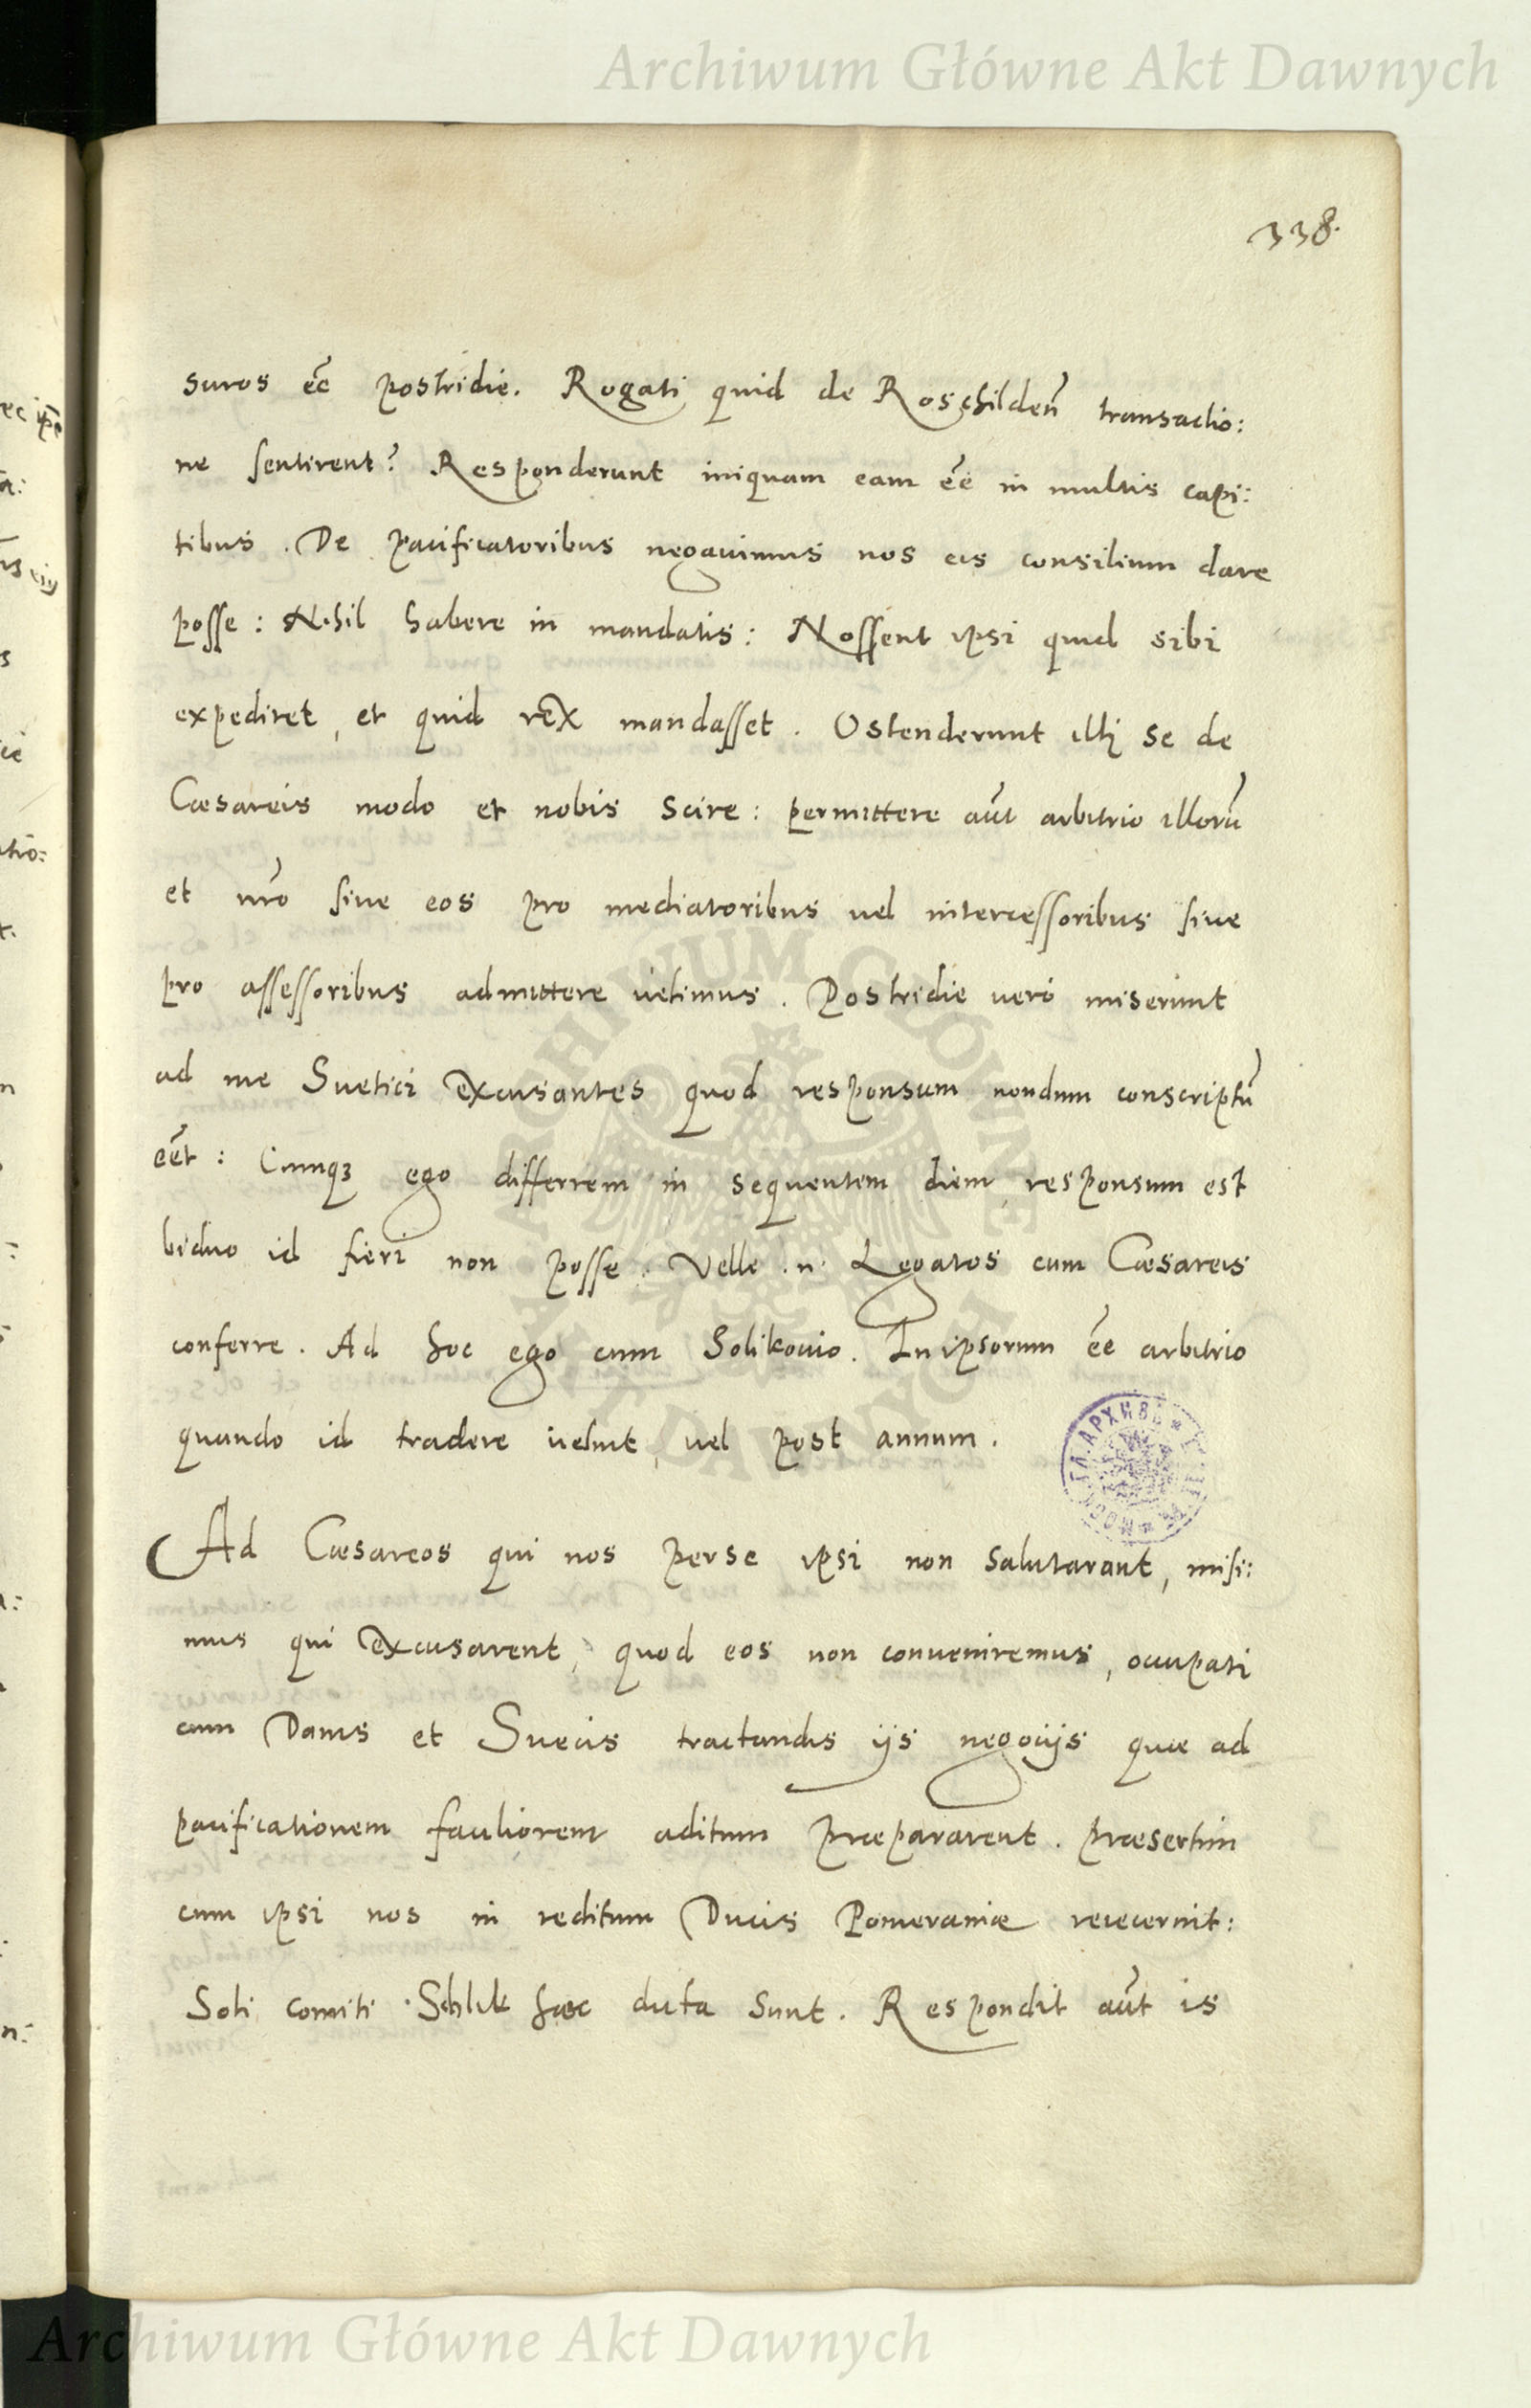 Archiwum Główne Akt Dawnych
338.
suros eẽ postridie. Rogati quid de Roschildeñ transactio:
ne sentirent? Responderunt iniquam eam eẽ in multis capi:
tibus. De pacificatoribus negauimus nos eis consilium dare
posse: Nihil habere in mandatis: Nossent ipsi quid sibi
expediret, et quid rex mandasset. Ostenderunt illi se de
Cæsareis modo et nobis scire: permittere aũt arbitrio illorũ
et nrõ siue eos pro mediatoribus uel intercessoribus siue
pro assessoribus admittere uelimus. Postridie uero miserunt
ad me Suetici excusantes quod responsum nondum conscriptũ
eẽt: Cumqꝫ ego differrem in sequentem diem, responsum est
biduo id fieri non posse. Velle .n. Legatos cum Cæsareis
conferre. Ad hoc ego cum Solikouio. In ipsorum eẽ arbitrio
quando id tradere uelint, uel post annum.
Ad Cæsareos qui nos per se ipsi non salutarant, misi:
mus qui excusarent, quod eos non conueniremus, occupati
cum Danis et Suecis tractandis ijs negocijs quæ ad
pacificationem faciliorem aditum præpararent. præsertim
cum ipsi nos in reditum Ducis Pomeraniæ reiecerint:
Soli comiti Schlik hæc dicta sunt. Respondit aũt is
ARCHIWUM GŁÓWNE AKT DAWNYCH
Archiwum Główne Akt Dawnych